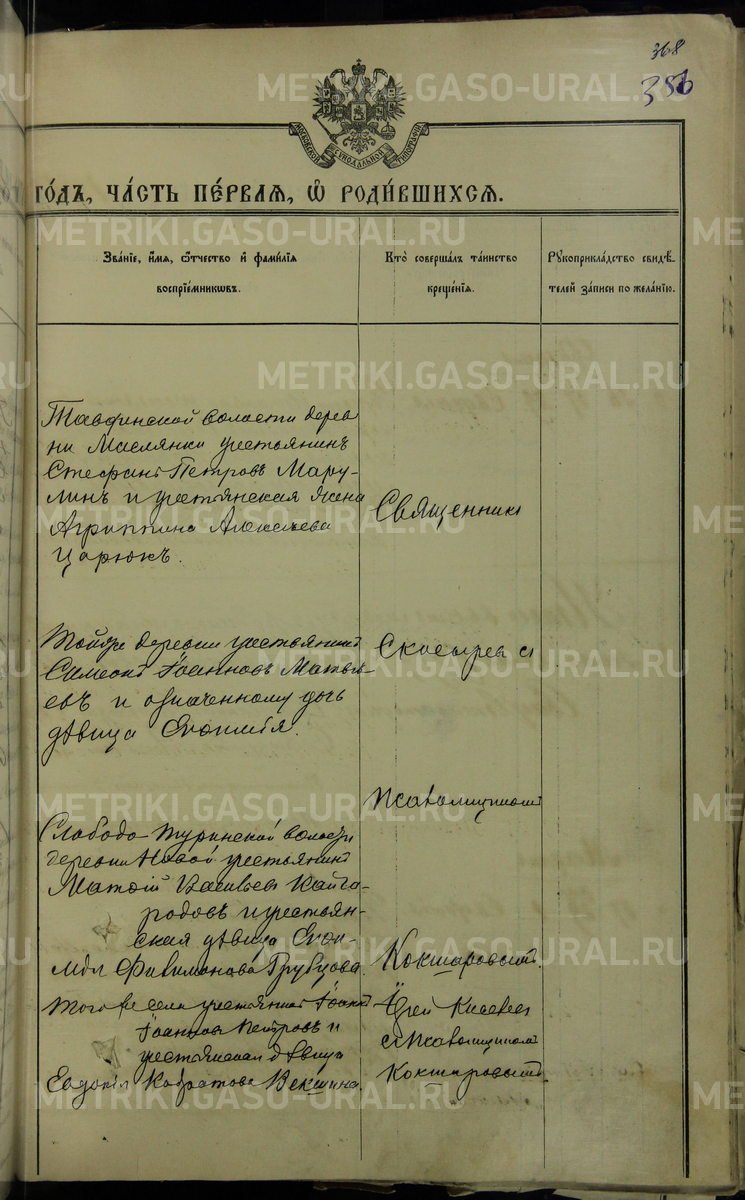 368
386
МОСКОВСКОЙ СѴНОДАЛЬНОЙ ТИПОГРАФІИ
ГО́ДЪ, ЧА́СТЬ ПЕ́РВАѦ, Ѡ҆ РОДИ́ВШИХСѦ.
Зва́нїе, и҆́мѧ, ѻ҆́тчество и҆ фами́лїѧ
воспрїе́мникѡвъ.
Кто̀ соверша́лъ та́инство
креще́нїѧ.
Рꙋкоприкла́дство свидѣ́-
телей за́писи по жела́нїю.
Тавдинской волости дерев
ни Маслянки крестьянинъ
Стефанъ Петровъ Мару-
линъ и крестьянская жена
Агриппина Алексѣева
Царюкъ.
Священникъ
Тойже деревни крестьянинъ
Симеонъ Іоанновъ Матвѣ-
евъ и означенному дочь
дѣвица
Скосырев с
Псаломщикомъ
Слободо-Туринской волости
деревни Новой крестьянинъ
Матѳій Васильев Кайго-
родовъ и крестьян-
ская дѣвица
Филимонова
Кокшаровымъ.
Того же села крестьянинъ Іоаннъ
Іоаннов Петровъ и
крестьянская дѣвица
Евдокія Векшина.
Іерей Киселев
с Псаломщикомъ
Кокшаровымъ.
METRIKI.GASO-URAL.RU